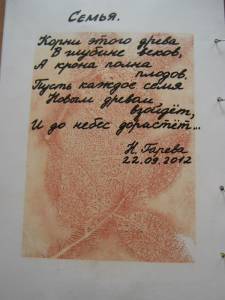 Семья.
Корни этого древа
В глубине веков,
А крона полна
плодов.
Пусть каждое семя
Новым древом
взойдёт,
И до небес дорастёт...
Н. Гарева
22.09.2012